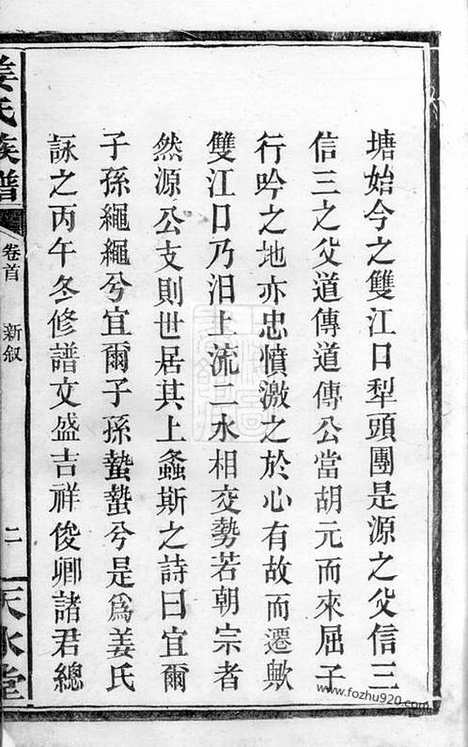 塘始今之雙江口犁頭團是源之父信三
信三之父道傳道傳公當胡元而來屈子
行吟之地亦忠憤激之於心有故而遷歟
雙江口乃汨上流二水相交勢若朝宗者
然源公支則世居其上螽斯之詩曰宜爾
子孫繩繩兮宜爾子孫蟄蟄兮是爲姜氏
詠之丙午冬修譜文盛吉祥俊卿諸君總
姜氏族譜 卷首 新叙 二 天水堂
www.fozhu920.com